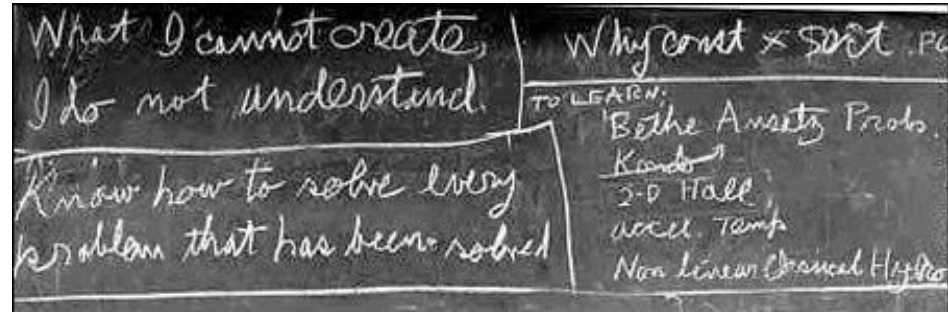 What I cannot create,
I do not understand.
Know how to solve every
problem that has been solved
Why const × sort . Po
TO LEARN:
Bethe Ansatz Probs.
Kondo
2-D Hall
accel. Temp
Non linear Classical Hydro